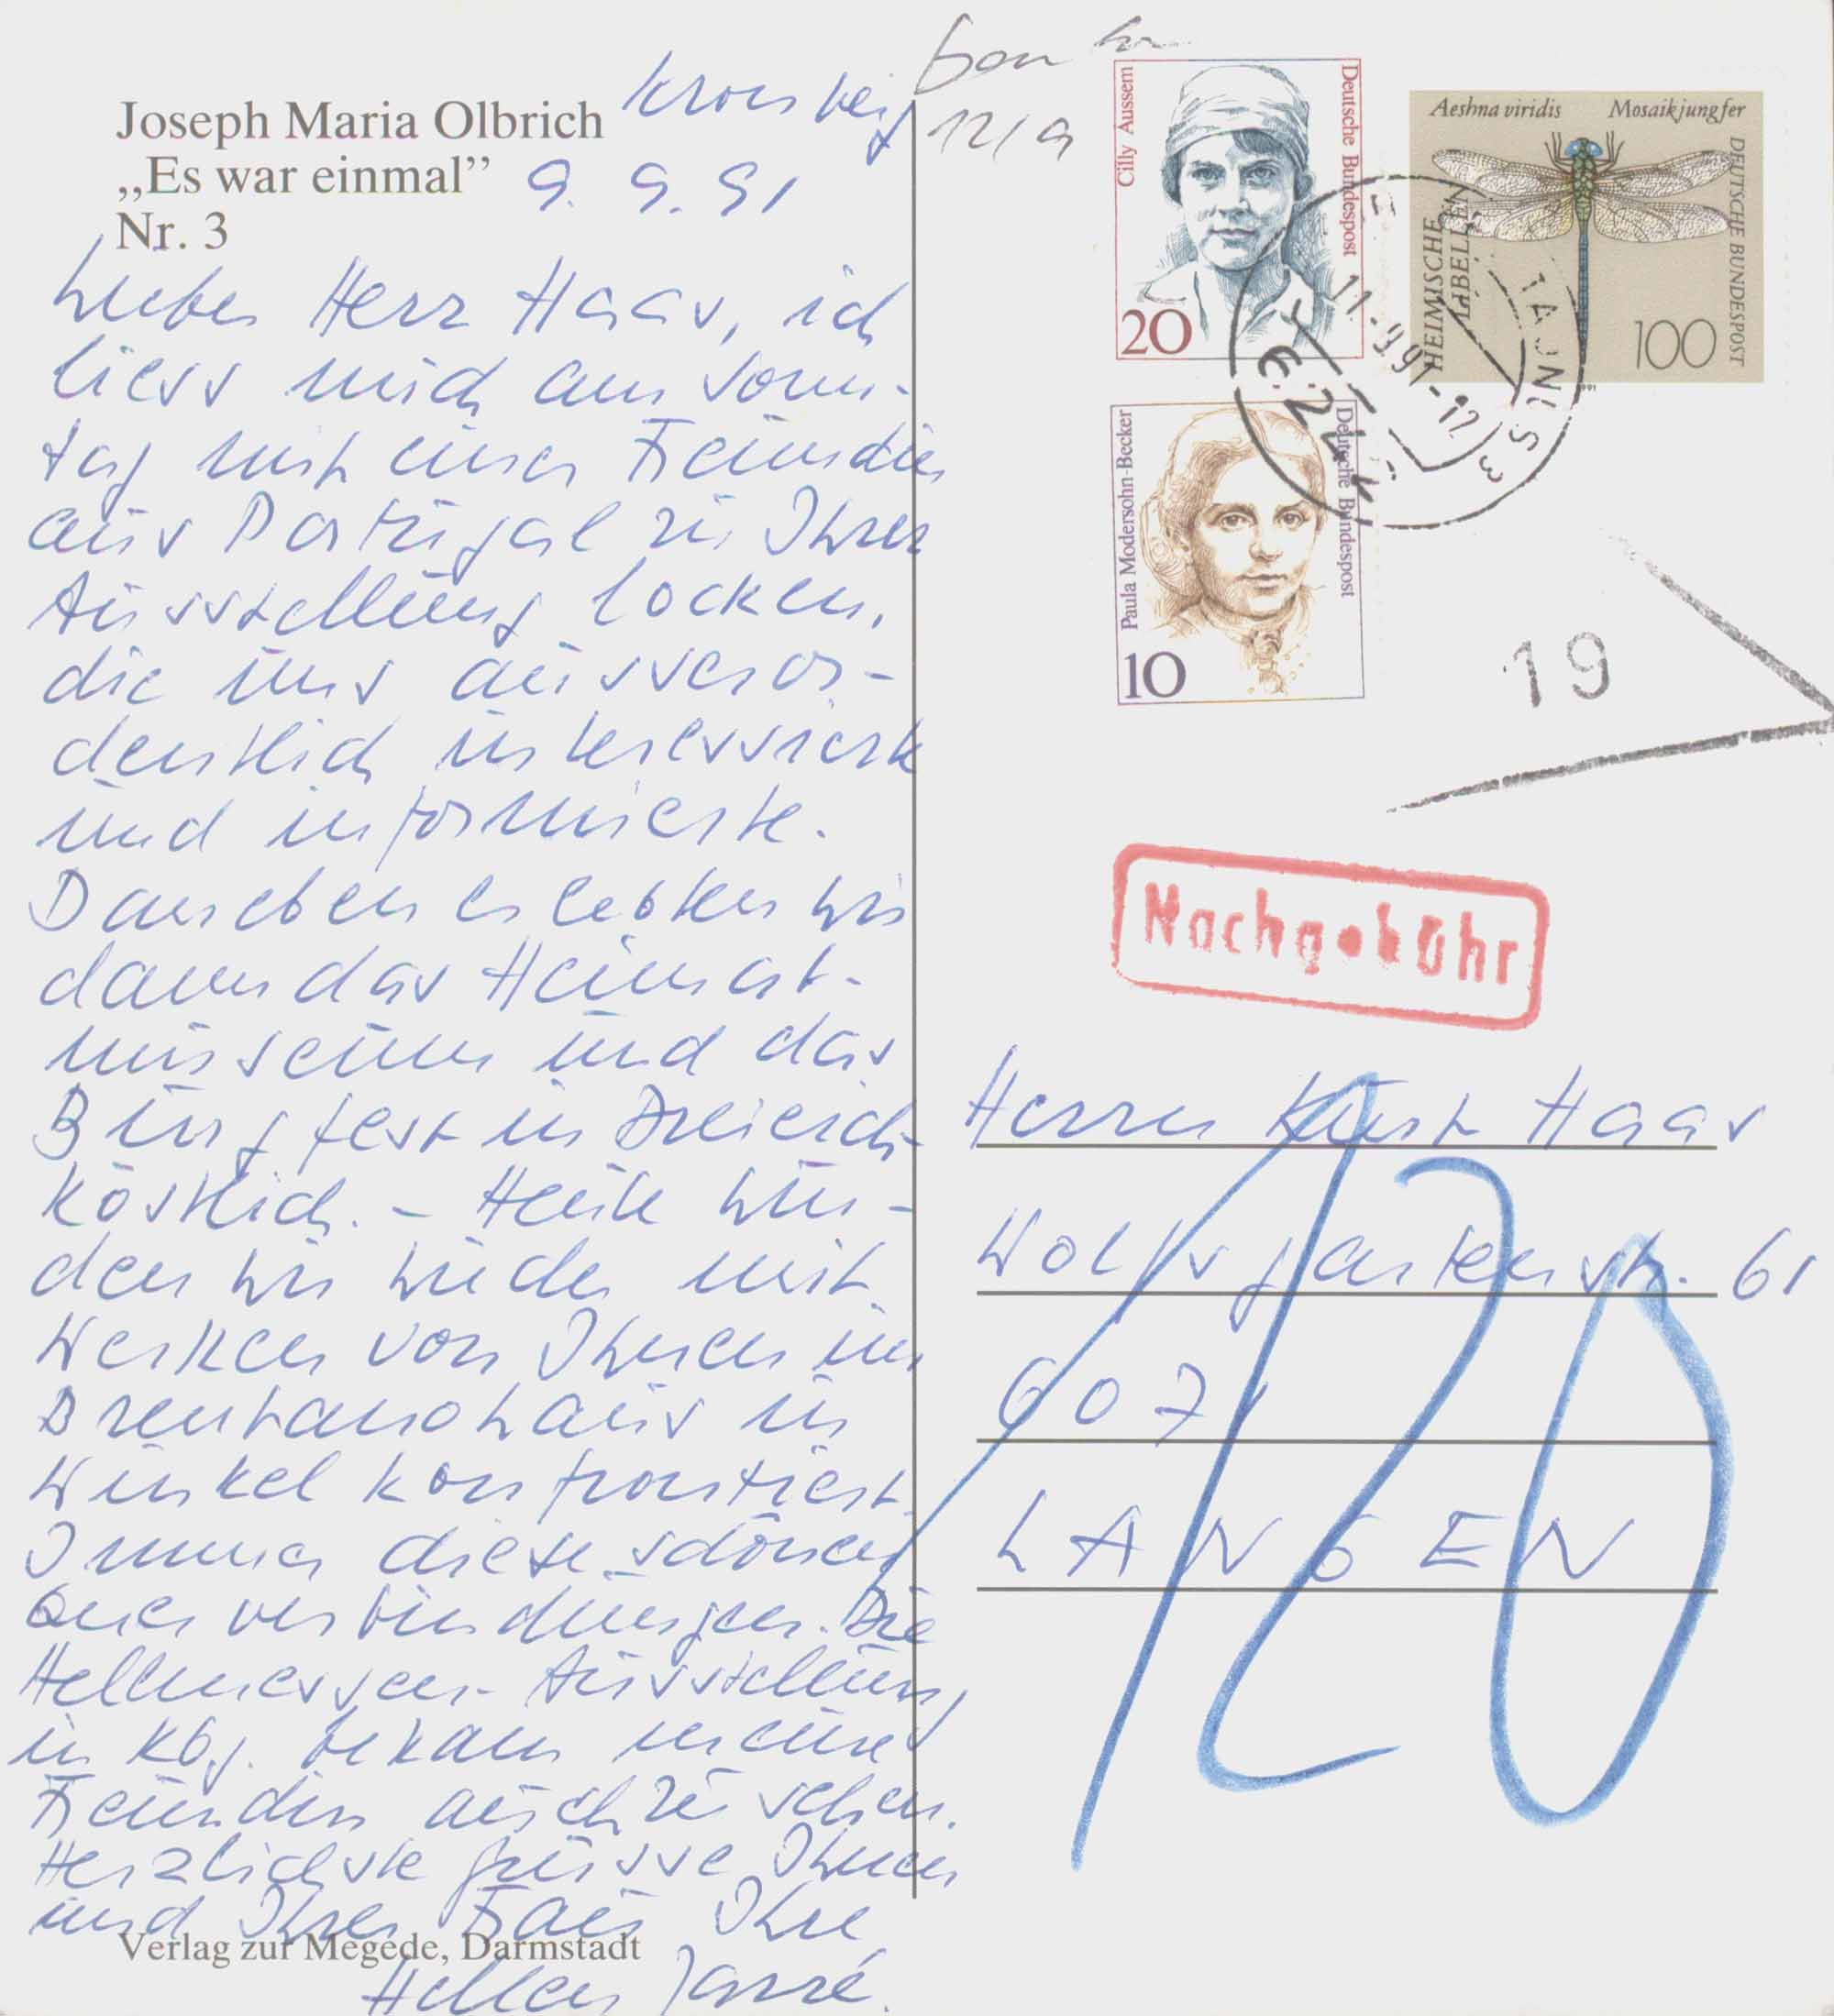 Joseph Maria Olbrich
„Es war einmal”
Nr. 3
Kronberg
9. 9. 91
Lieber Herr Haas, ich
liess mich am Sonn-
tag mit einer Freundin
aus Portugal zu Ihrer
Ausstellung locken,
die uns ausseror-
dentlich interessierte
und informierte.
Daneben erlebten wir
dann das Heimat-
museum und das
Burgfest in Dreieich
köstlich. - Heute wur-
den wir wieder mit
Werken von Ihnen im
Brentanohaus in
Winkel konfrontiert.
Immer diese schönen
Querverbindungen. Die
Hellmessen-Ausstellung
in Kbg. bekam meine
Freundin auch zu sehen.
Herzlichste Grüsse Ihnen
und Ihrer Frau Ihre
Hellen Jarré.
Verlag zur Megede, Darmstadt
12/9
Cilly Aussem
Deutsche Bundespost
20
Aeshna viridis Mosaikjungfer
HEIMISCHE
LIBELLEN
DEUTSCHE BUNDESPOST
100
1991
11.-9.91-17
Paula Modersohn-Becker
Deutsche Bundespost
10
19
Nachgebühr
Herrn Kurt Haas
Wolfsgartenstr. 61
6071
LANGEN
120